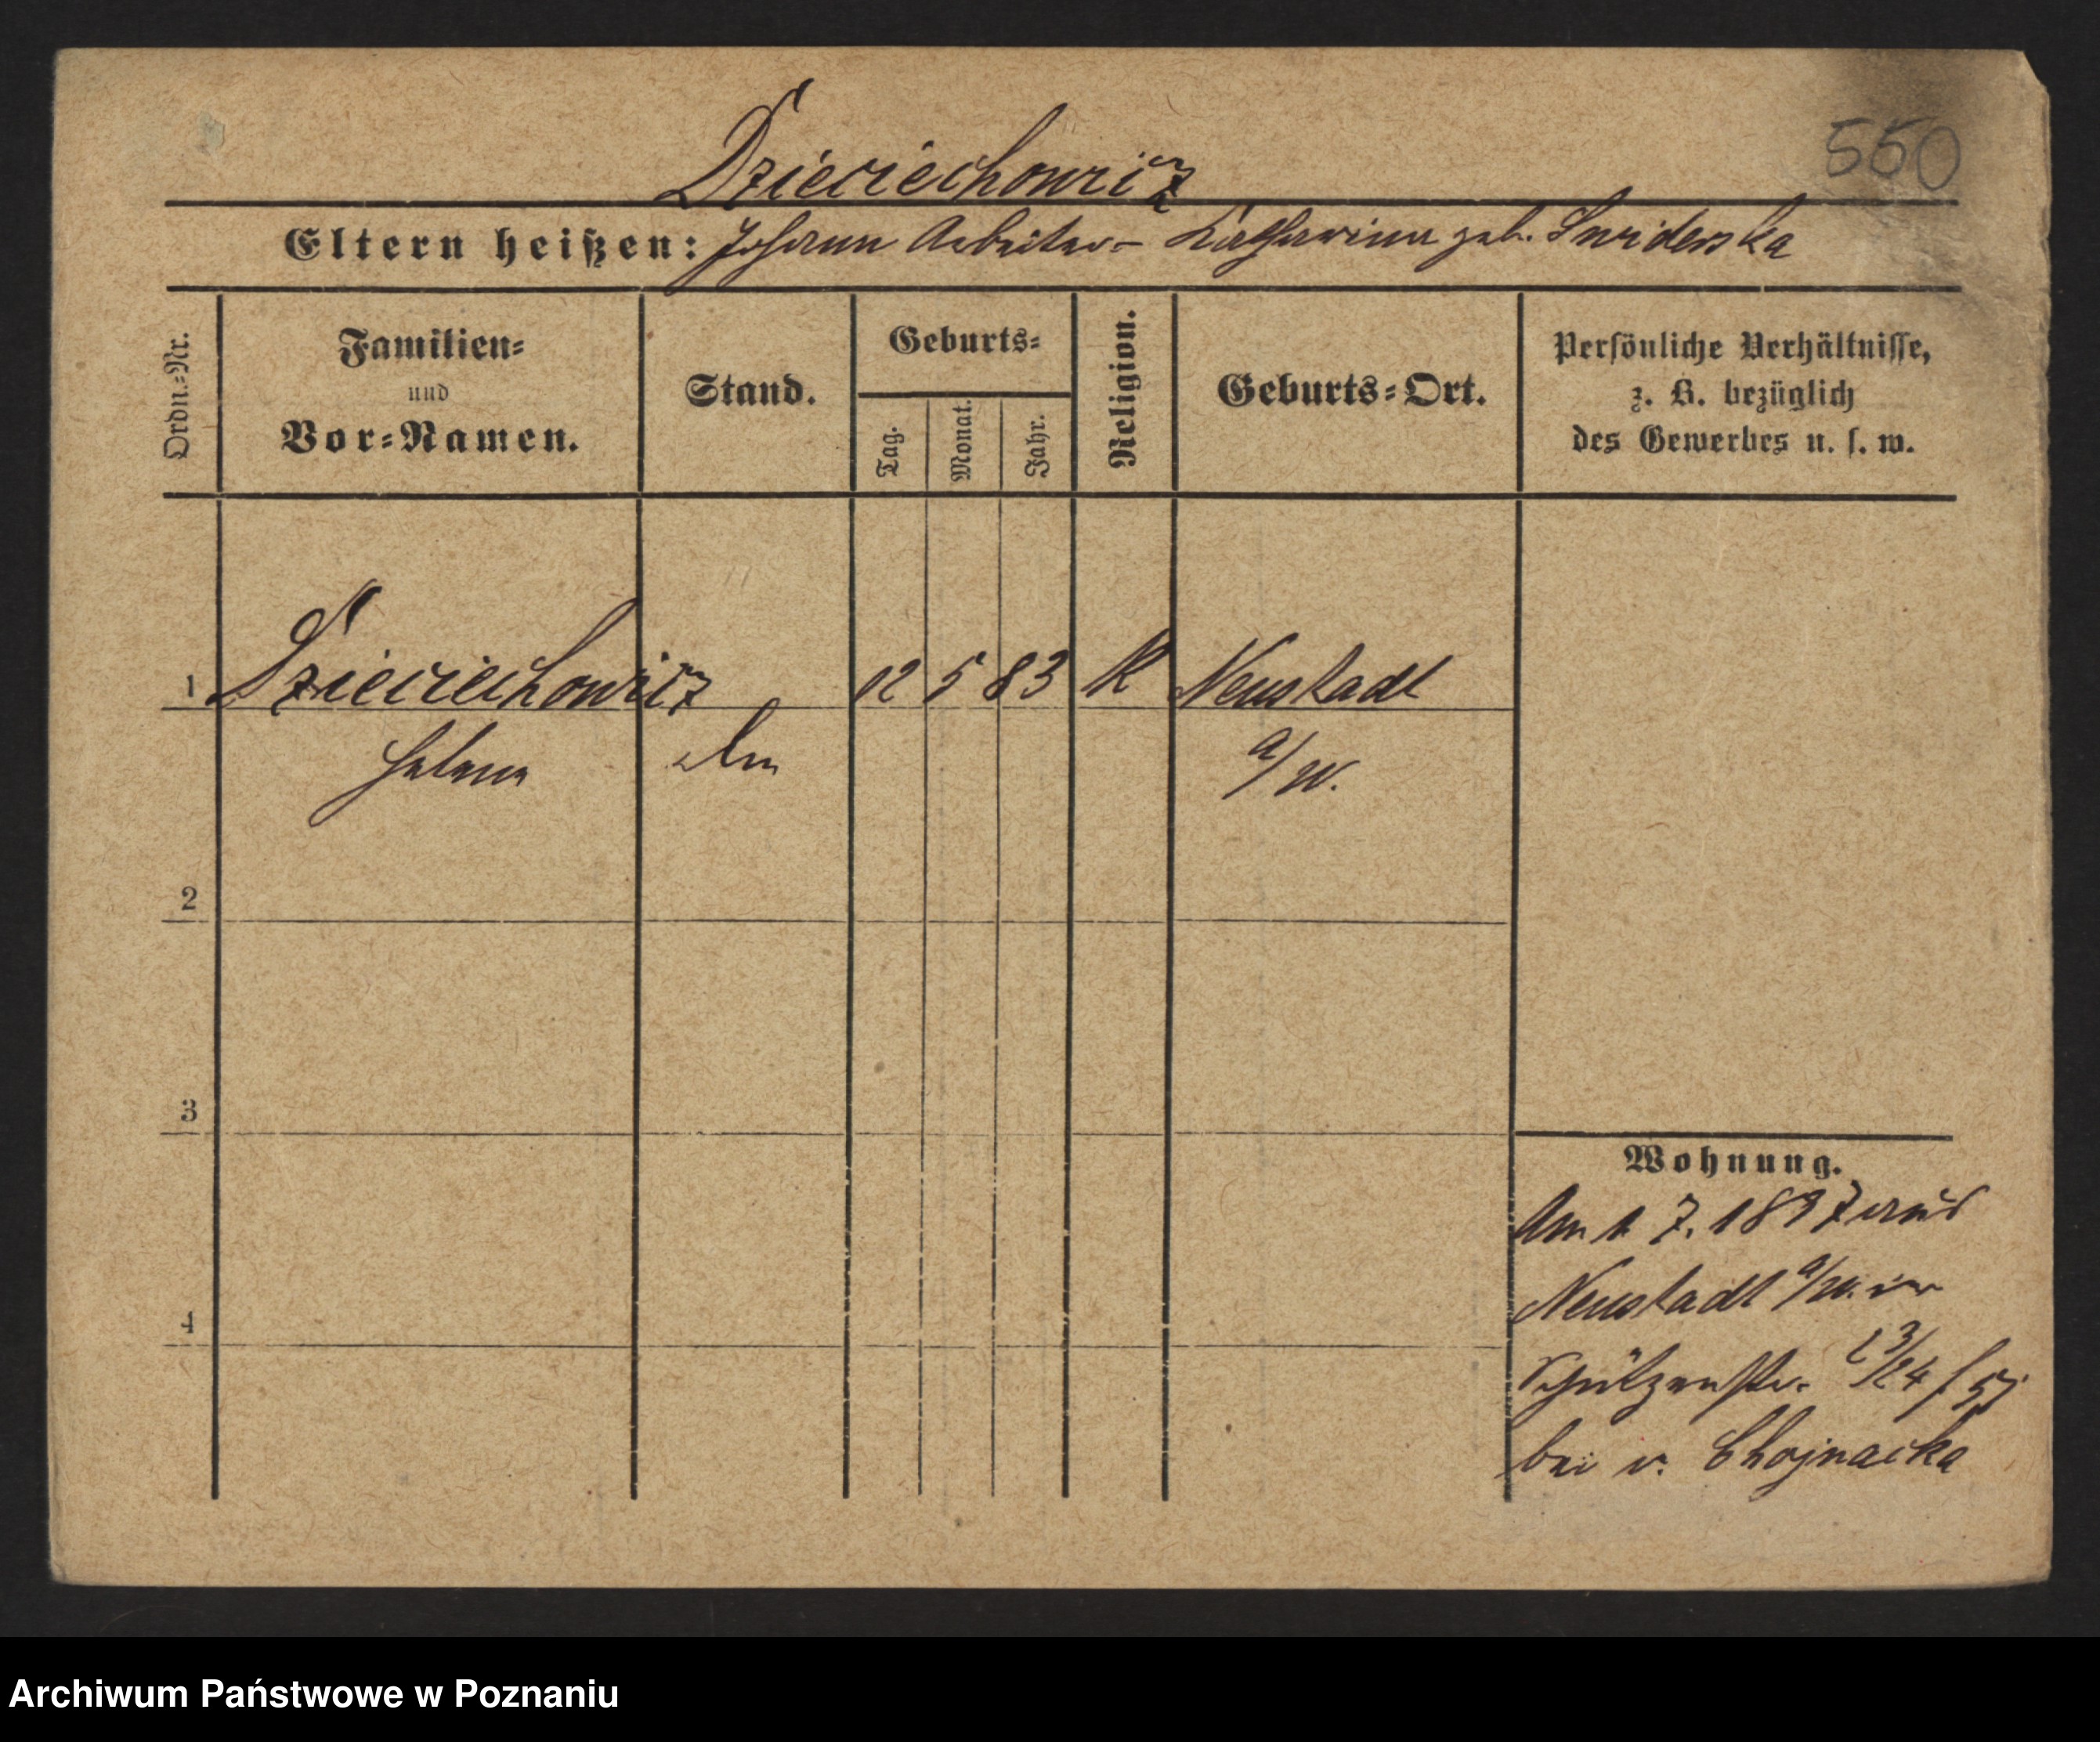 550
Dzieciechowicz
Eltern heißen: Johann Arbeiter - Katharina geb. Swiderska
Ordn.-Nr.
Familien-
und
Vor-Namen.
Stand.
Geburts-
Tag.
Monat.
Jahr.
Religion.
Geburts-Ort.
Persönliche Verhältnisse,
z. B. bezüglich
des Gewerbes u. s. w.
1 Dzieciechowicz 12 5 83 K Neustadt
Helena a/W.
2
3
4
Wohnung.
Am 1. 7. 1897 aus
Neustadt a/W.
Schützenstr. 23/24
bei v. Chojnacka
Archiwum Państwowe w Poznaniu